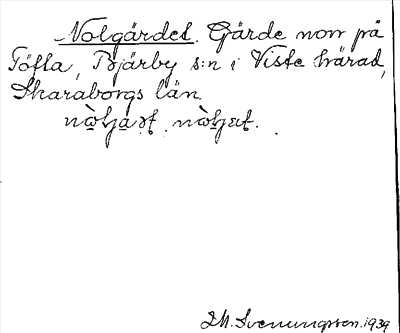 Nolgärdet. Gärde norr på
Töfta, Bjärby s:n i Viste härad,
Skaraborgs län.
D.M. Svenungsson. 1939